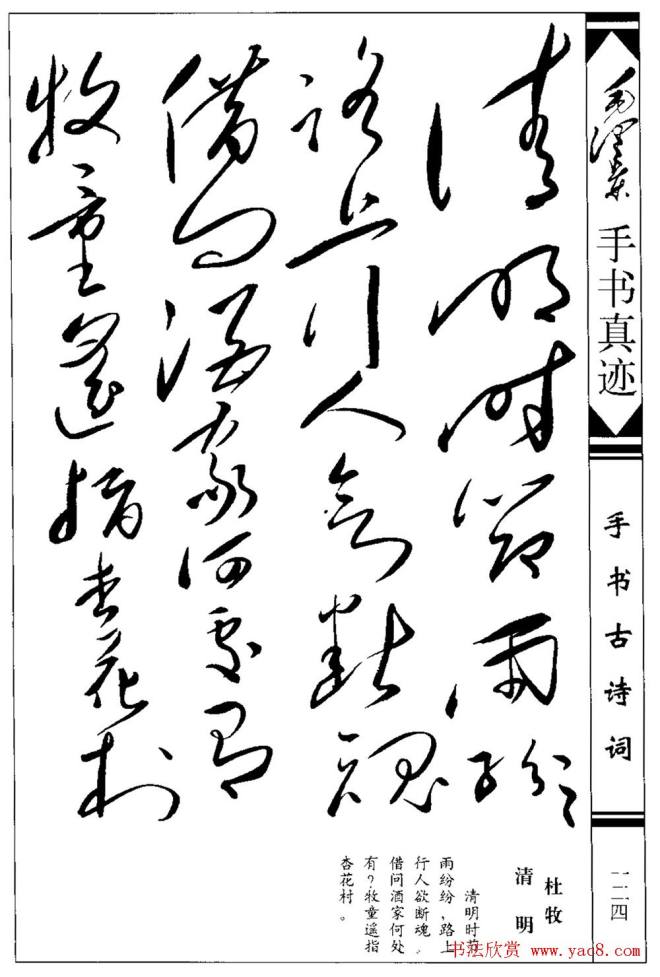 毛泽东
手书真迹
手书古诗词
一二四
清明时节雨纷纷
路上行人欲断魂
借问酒家何处有
牧童遥指杏花村
杜牧
清明
清明时节
雨纷纷，路上
行人欲断魂。
借问酒家何处
有？牧童遥指
杏花村。
书法欣赏 www.yac8.com